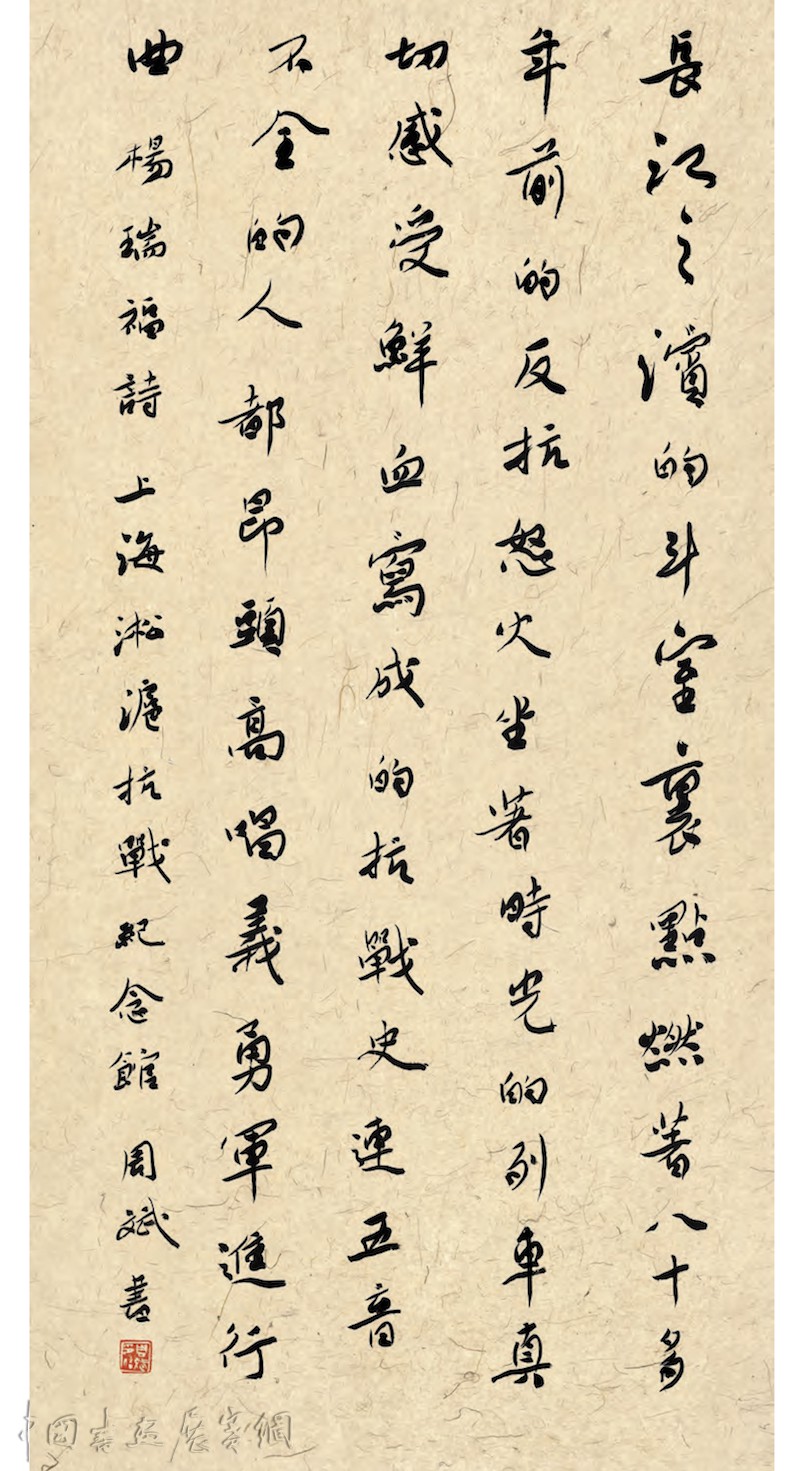 長江之濱的斗室裏點燃著八十多
年前的反抗怒火坐著時光的列車真
切感受鮮血寫成的抗戰史連五音
不全的人都昂頭高唱義勇軍進行
曲 楊瑞福詩 上海淞滬抗戰紀念館 周斌書
中國書法展賽網